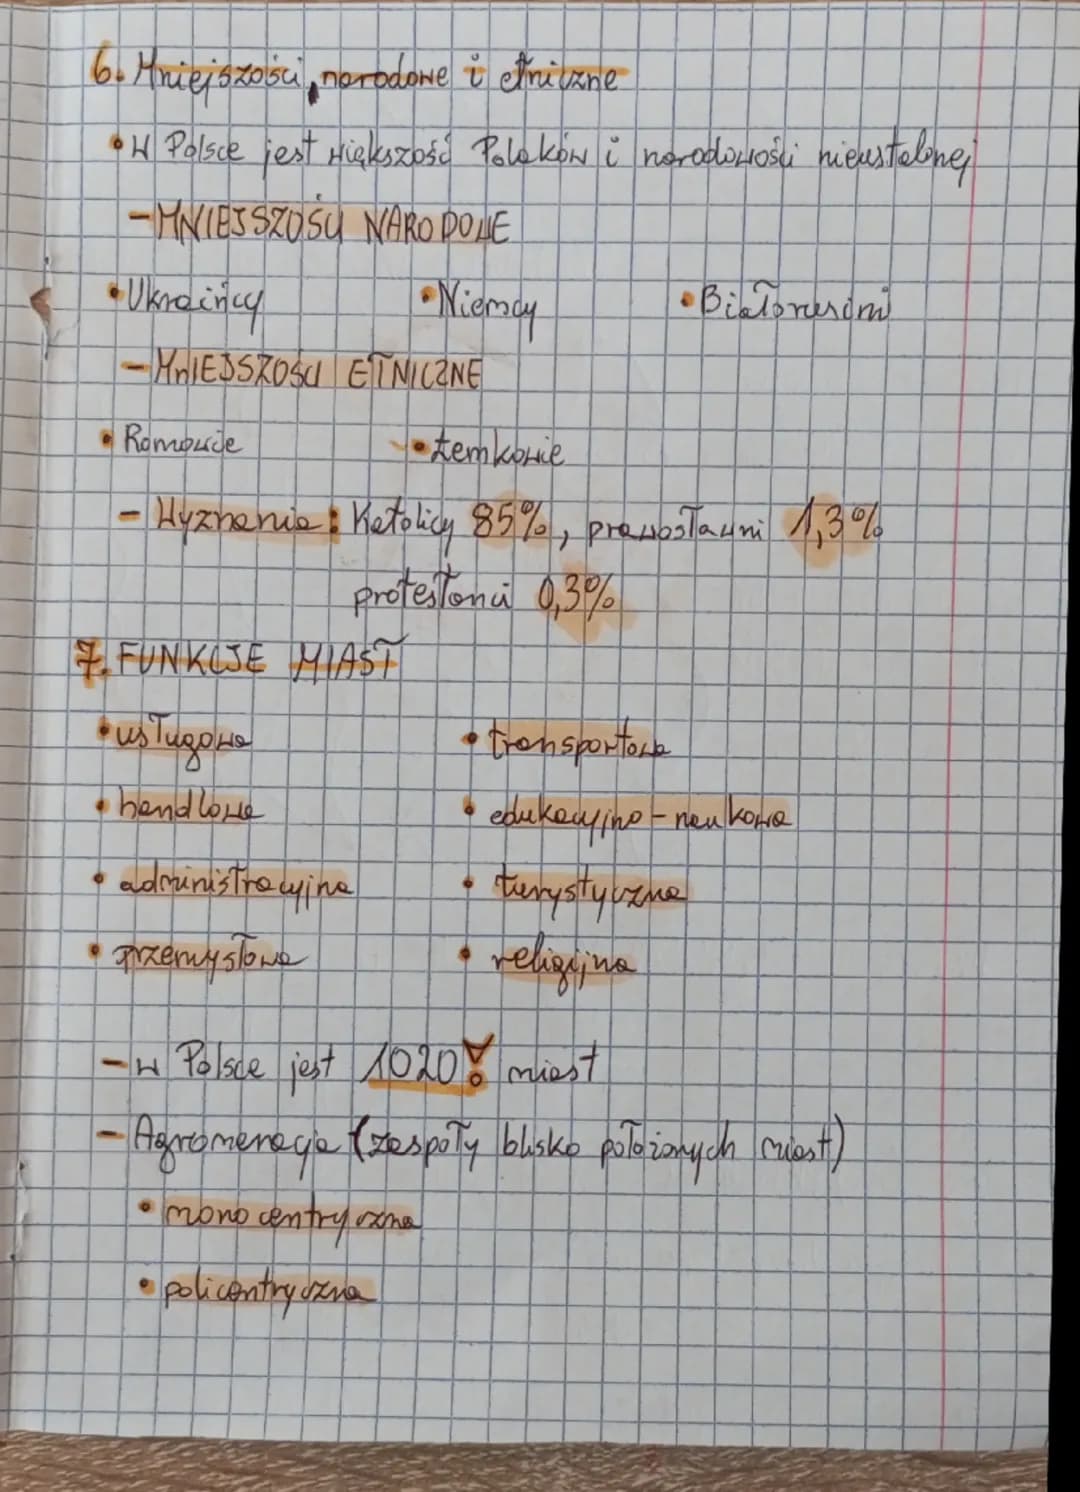 6. Mniejszości narodowe i etniczne
• W Polsce jest większość Polaków i narodowości nieustalonej
- MNIEJSZOŚCI NARODOWE
• Ukraińcy • Niemcy • Białorusini
- MNIEJSZOŚCI ETNICZNE
• Romowie • Łemkowie
- Wyznania: Katolicy 85%, prawosławni 1,3%
protestanci 0,3%
7. FUNKCJE MIAST
• usługowa • transportowa
• handlowa • edukacyjno-naukowa
• administracyjna • turystyczna
• przemysłowa • religijna
- w Polsce jest 1020! miast
- Agromeracja (zespoły blisko położonych miast)
• monocentryczna
• policentryczna